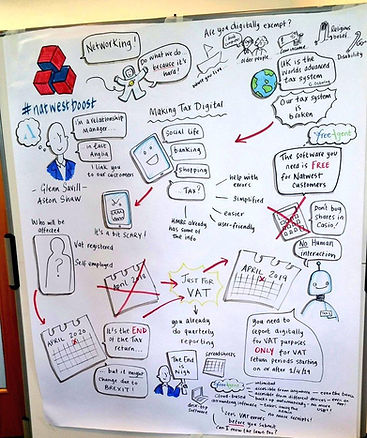 Networking!
Do what we do
because it's
hard!
Are you digitally exempt?
where you live
older people
Religious
beliefs
Disability
UK is the
worlds advanced
tax system
Our tax system
is
broken
#natwestboost
I'm a relationship
manager...
in East
Anglia
I link you
to our customers
- Glenn Savill -
Aston Shaw
Making Tax Digital
social life
banking
shopping
TAX?
help with
errors
simplified
easier
user-friendly
HMRC already
has some of
the info
It's a bit SCARY!
FreeAgent
The software you
need is FREE
for
Natwest
Customers
Don't buy
shares in
Casio!
No Human
interaction
Who will be
affected
Vat registered
Self employed
April 2018
JUST FOR
VAT
APRIL 2019
you already
do quarterly
reporting
APRIL 2020
It's the END
of the Tax
return...
...but it might
change due to
BREXIT!
The End
is
nigh
spreadsheets
Desktop Software
Cloud-based
accounting
you need to
report digitally
for VAT purposes
ONLY for VAT
return periods starting
on or after 1/4/19
unlimited
accessible from anywhere
accessible from different devices
no more receipts!
before you submit